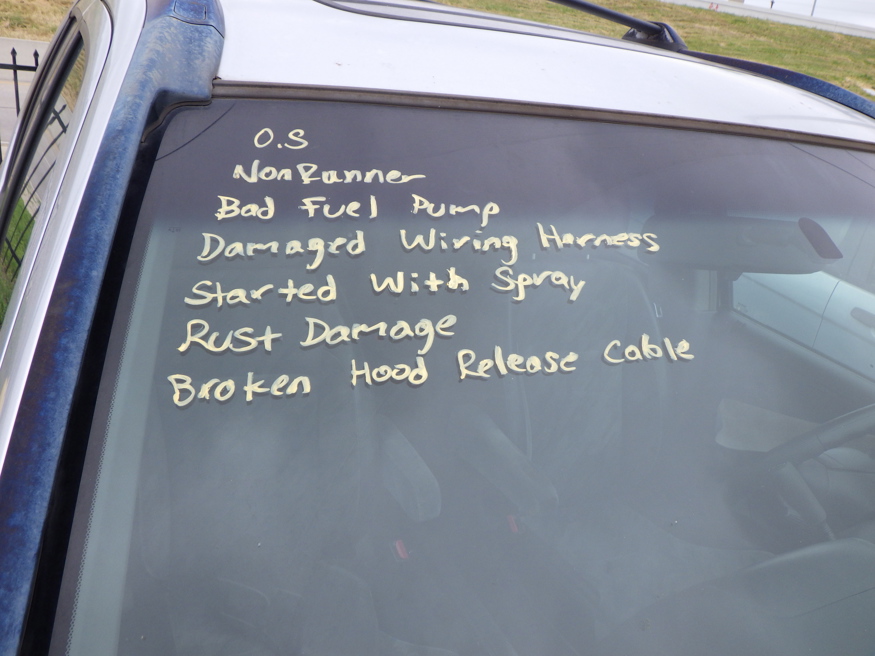 O.S
Non Runner
Bad Fuel Pump
Damaged Wiring Harness
Started With Spray
Rust Damage
Broken Hood Release Cable